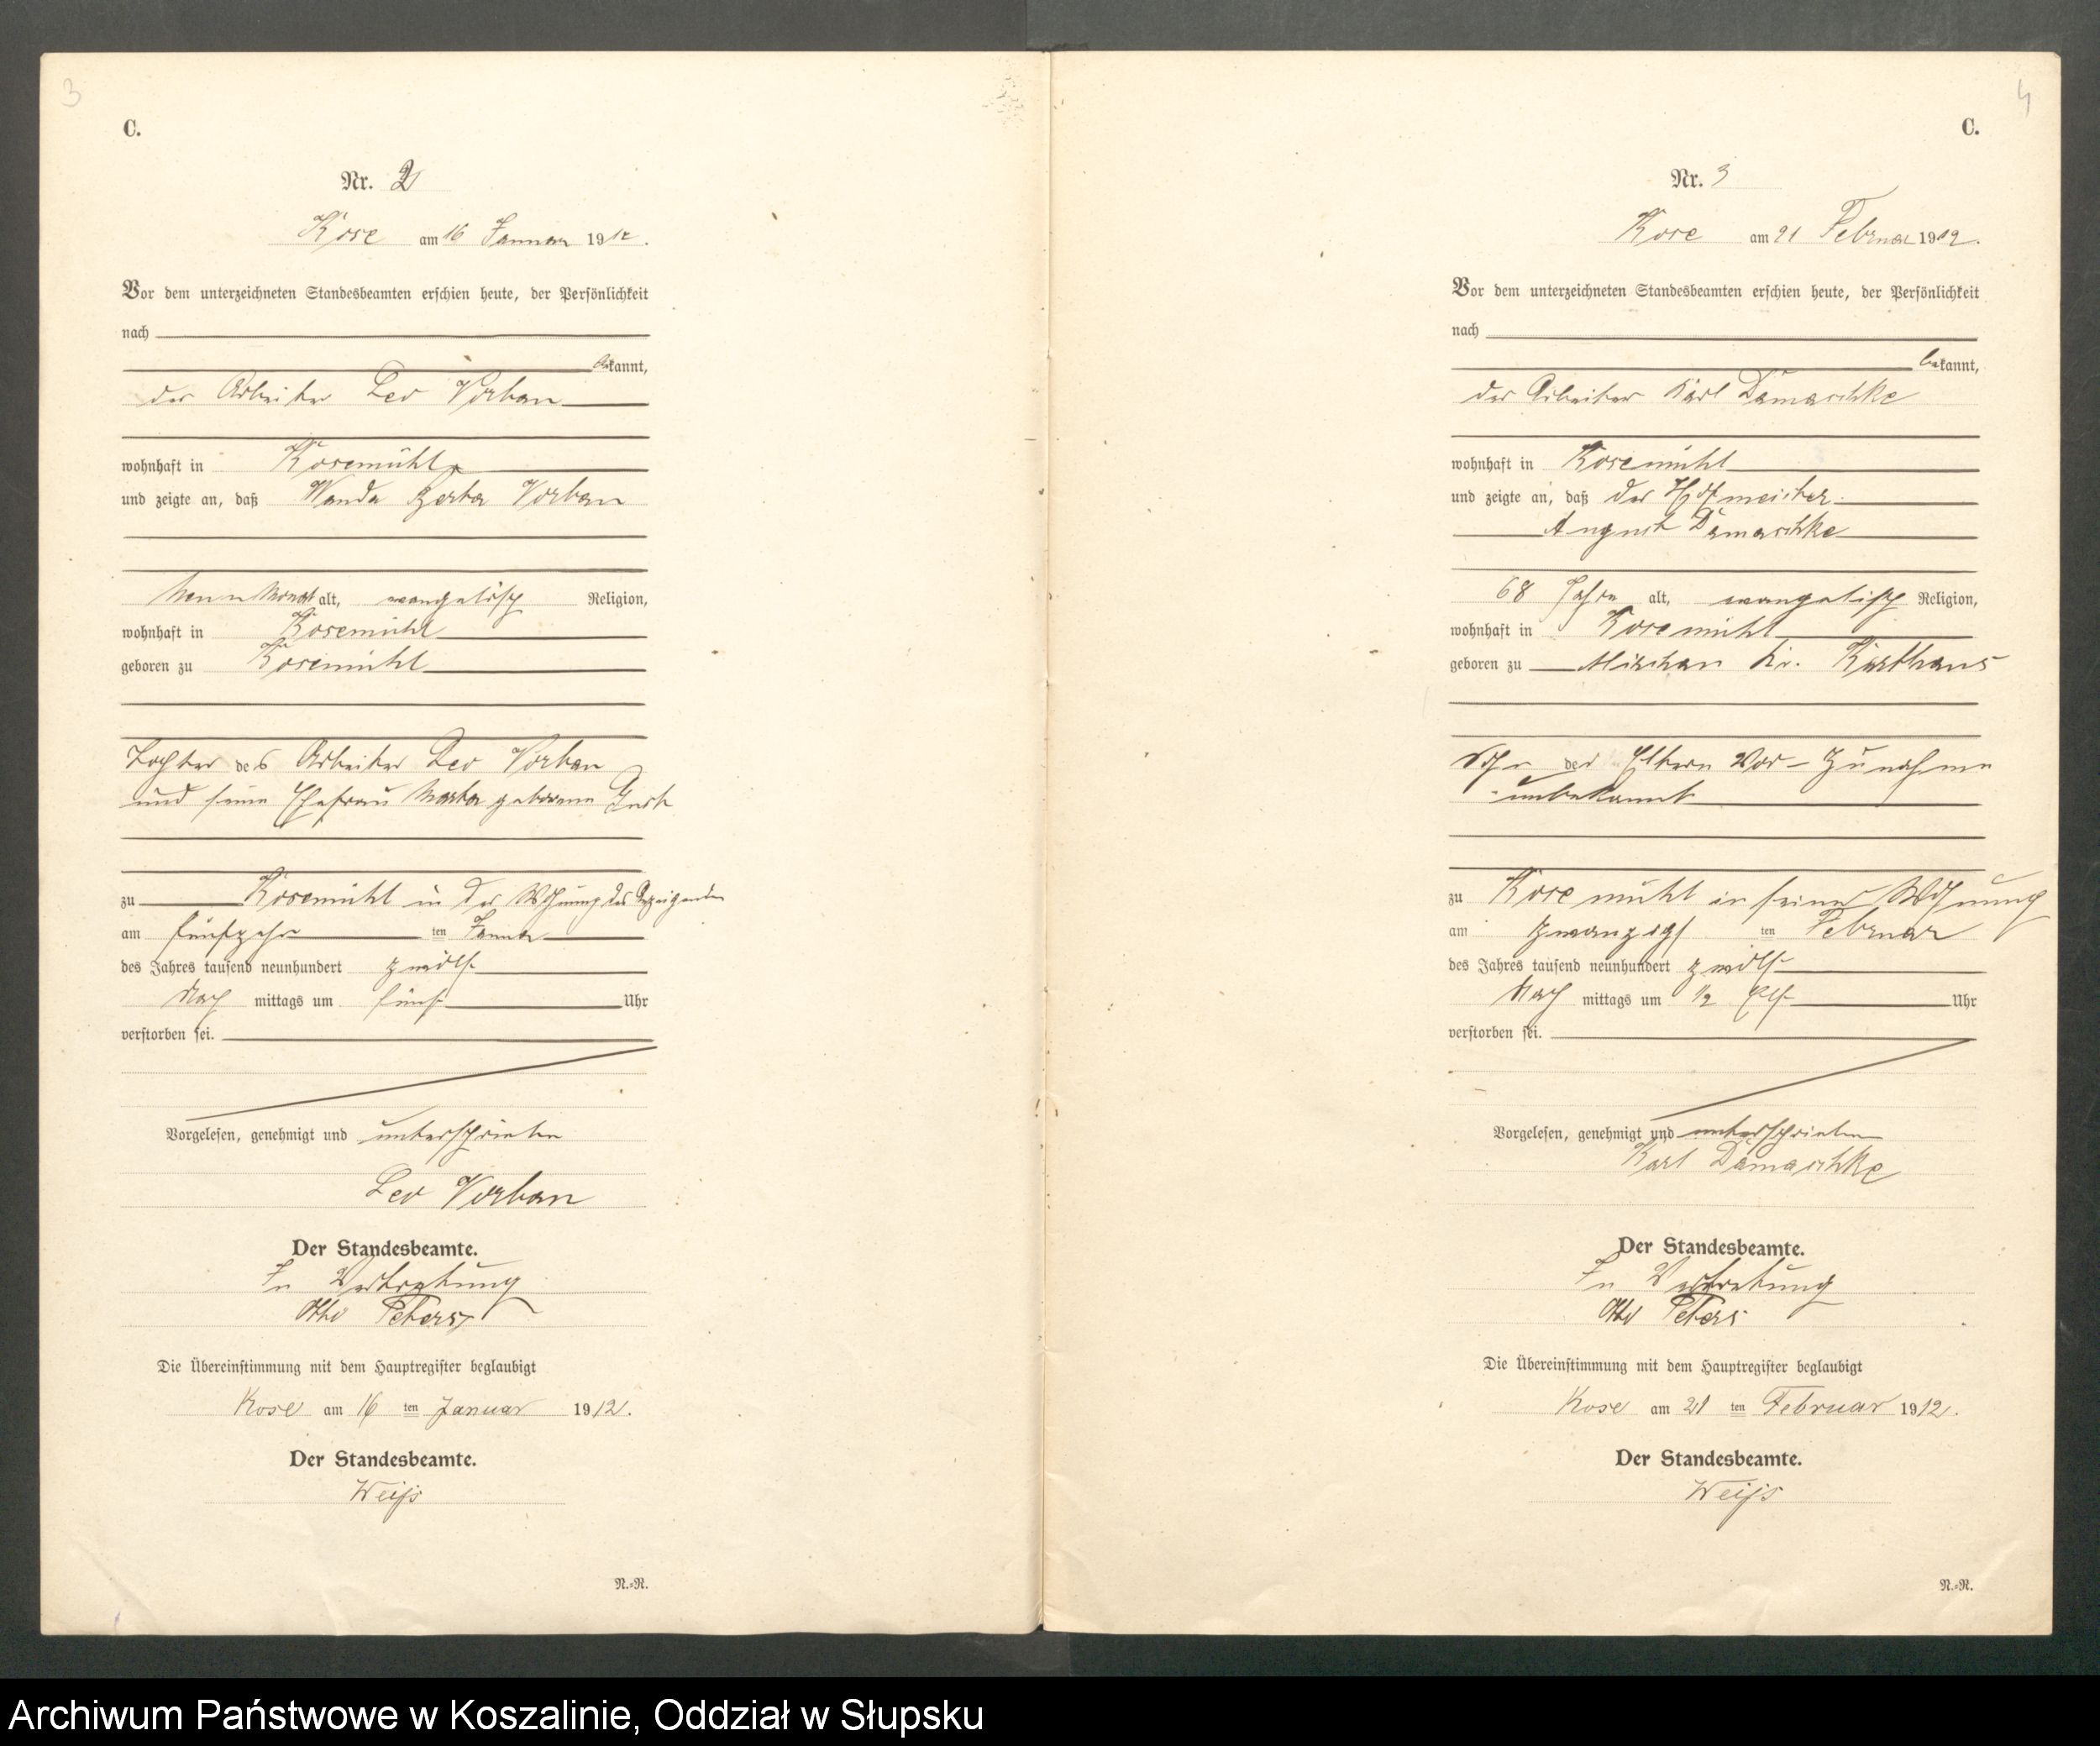 3
C.
Nr. 2
Kose am 16 Januar 1912.
Vor dem unterzeichneten Standesbeamten erschien heute, der Persönlichkeit
nach
bekannt,
der Arbeiter Leo Vorban
wohnhaft in Kosemühl
und zeigte an, daß Wanda Berta Vorban
neun Monat alt, evangelisch Religion,
wohnhaft in Kosemühl
geboren zu Kosemühl
Tochter des Arbeiter Leo Vorban
und seine Ehefrau Marta geborene
zu Kosemühl in der Wohnung des Anzeigenden
am fünfzehn ten Januar
des Jahres tausend neunhundert zwölf
Nach mittags um fünf Uhr
verstorben sei.
Vorgelesen, genehmigt und unterschrieben
Leo Vorban
Der Standesbeamte.
In Vertretung
Otto Peters
Die Übereinstimmung mit dem Hauptregister beglaubigt
Kose am 16 ten Januar 1912.
Der Standesbeamte.
Weiß
N.=N.
4
C.
Nr. 3
Kose am 21 Februar 1912.
Vor dem unterzeichneten Standesbeamten erschien heute, der Persönlichkeit
nach
bekannt,
der Arbeiter Karl Damaschke
wohnhaft in Kosemühl
und zeigte an, daß der Hofmeister
August Damaschke
68 Jahre alt, evangelisch Religion,
wohnhaft in Kosemühl
geboren zu Kr. Karthaus
Sohn der Eltern Vor- Zunahme
unbekannt
zu Kosemühl in seiner Wohnung
am zwanzigs ten Februar
des Jahres tausend neunhundert zwölf
Nach mittags um 1/2 Elf Uhr
verstorben sei.
Vorgelesen, genehmigt und unterschrieben
Karl Damaschke
Der Standesbeamte.
In Vertretung
Otto Peters
Die Übereinstimmung mit dem Hauptregister beglaubigt
Kose am 21 ten Februar 1912.
Der Standesbeamte.
Weiß
N.=N.
Archiwum Państwowe w Koszalinie, Oddział w Słupsku